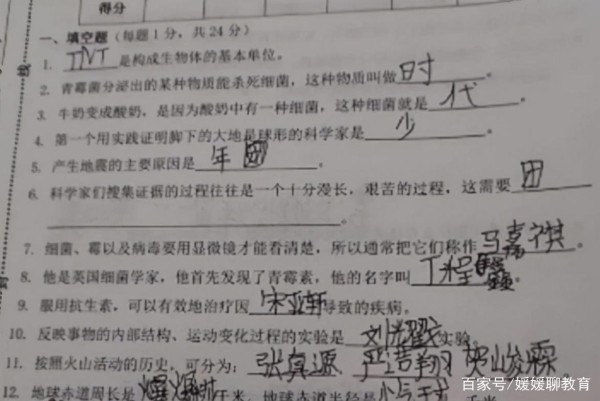 得分
一、填空题（每题1分，共24分）
1. TNT 是构成生物体的基本单位。
2. 青霉菌分泌出的某种物质能杀死细菌，这种物质叫做 时 。
3. 牛奶变成酸奶，是因为酸奶中有一种细菌，这种细菌就是 代 。
4. 第一个用实践证明脚下的大地是球形的科学家是 少 。
5. 产生地震的主要原因是 年 团 。
6. 科学家们搜集证据的过程往往是一个十分漫长，艰苦的过程，这需要 团
。
7. 细菌、霉以及病毒要用显微镜才能看清楚，所以通常把它们称作 马嘉祺 。
8. 他是英国细菌学家，他首先发现了青霉素，他的名字叫 丁程鑫 。
9. 服用抗生素，可以有效地治疗因 宋亚轩 导致的疾病。
10. 反映事物的内部结构、运动变化过程的实验是 刘耀 实验。
11. 按照火山活动的历史，可分为： 张真源 严浩翔 贺峻霖 。
12. 地球赤道周长是 千米，地球赤道半径是 千米
百家号/媛媛聊教育